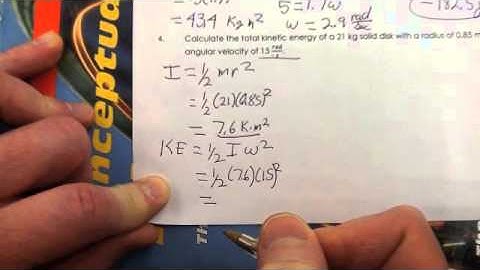 = 434 Kgm²
5 = 1.7ω
ω = 2.9 rad/sec
-182.5
4. Calculate the total kinetic energy of a 21 kg solid disk with a radius of 0.85 m
angular velocity of 15 rad
I = ½ mr²
= ½ (21)(0.85)²
= 7.6 K·m²
KE = ½ I ω²
= ½ (7.6)(15)²
=
nceptua